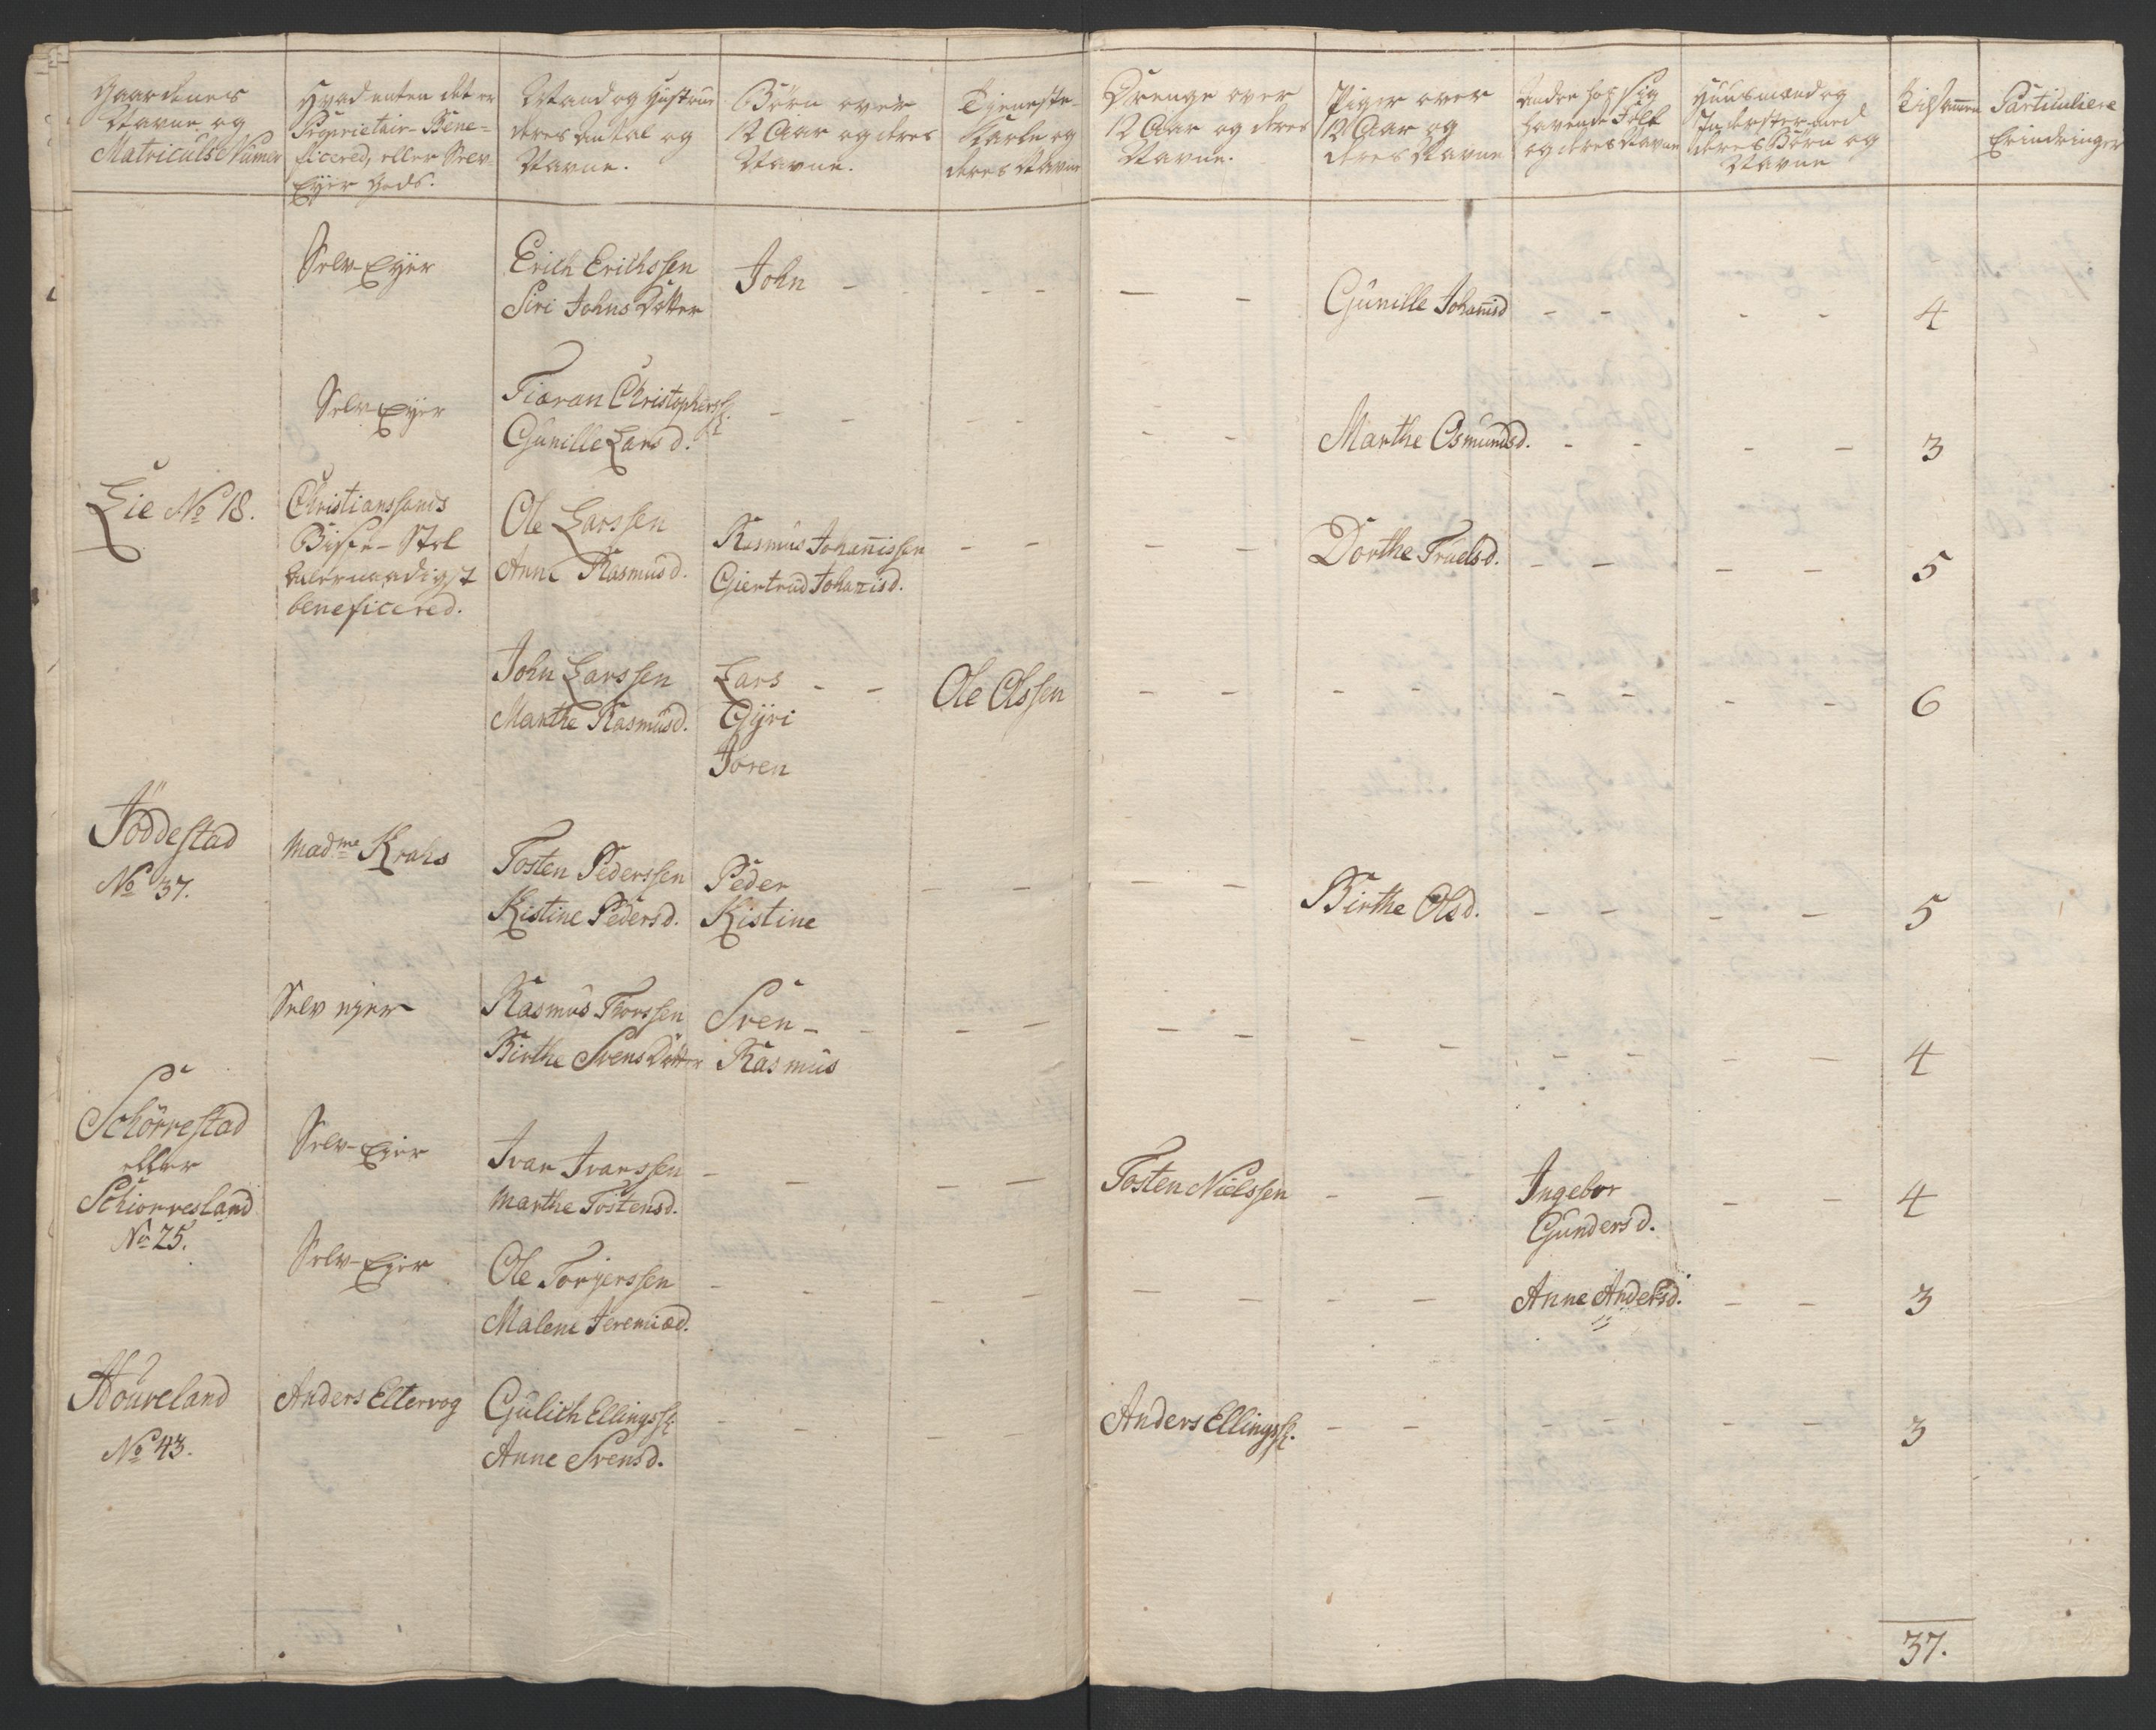 Gaardenes
Navne og
Matriculs Numer
Hvad enten det er
Proprietair- Bene-
ficered, eller Selv-
Eyer Gods.
Mand og Hustrue
deres Antal og
Navne.
Børn over
12 Aar og deres
Navne.
Tjeneste-
Karle og
deres Navne
Drenge over
12 Aar og deres
Navne.
Piger over
12 Aar og
deres Navne
Andre hos sig
havende Folk
og deres Navne
Huusmænd og
Inderster med
deres Børn og
Navne
Tilsamen
Particuliere
Erindringer
Selv-Eyer
Erich Erichssen
Siri Johns Dotter
John - - - -
- -
Gunille Johanisd - -
- -
4
Selv-Eyer
Tiøran Christophers:
Gunille Lars d.
- - - -
- -
Marthe Osmundsd. - -
- -
3
Lie No 18.
Christianssands
Bispe-Stol
allernaadigst
beneficered.
Ole Larssen
Anne Rasmusd.
Rasmus Johanissen
Giertrud Johanisd.
- -
- -
Dorthe Truelsd. - -
- -
5
John Larssen
Marthe Rasmusd.
Lars - -
Gyri
Joren
Ole Olssen
- - - - - - - -
6
Jøddestad
No 37.
Madme Krahs
Tosten Pederssen
Kistine Pedersd.
Peder
Kistine
- -
- -
Birthe Olsd. - -
- -
5
Selv eyer
Rasmus Thorssen
Birthe Svens Dotter
Sven - -
Rasmus
- -
- - - - - - - -
4
Schörrestad
eller
Schiorresland
No 25.
Selv-Eyer
Ivar Ivarssen
Marthe Tostensd.
- - - -
Tosten Nielssen - -
Ingebor
Gundersd.
- -
4
Selv-Eyer
Ole Torgerssen
Malene Jeremiæd.
- - - -
- - - -
Anne Andersd. - -
3
Houveland
No 43.
Anders Eltervog
Gulich Ellings:
Anne Svensd.
- - - -
Anders Ellings: - - - - - -
3
37.